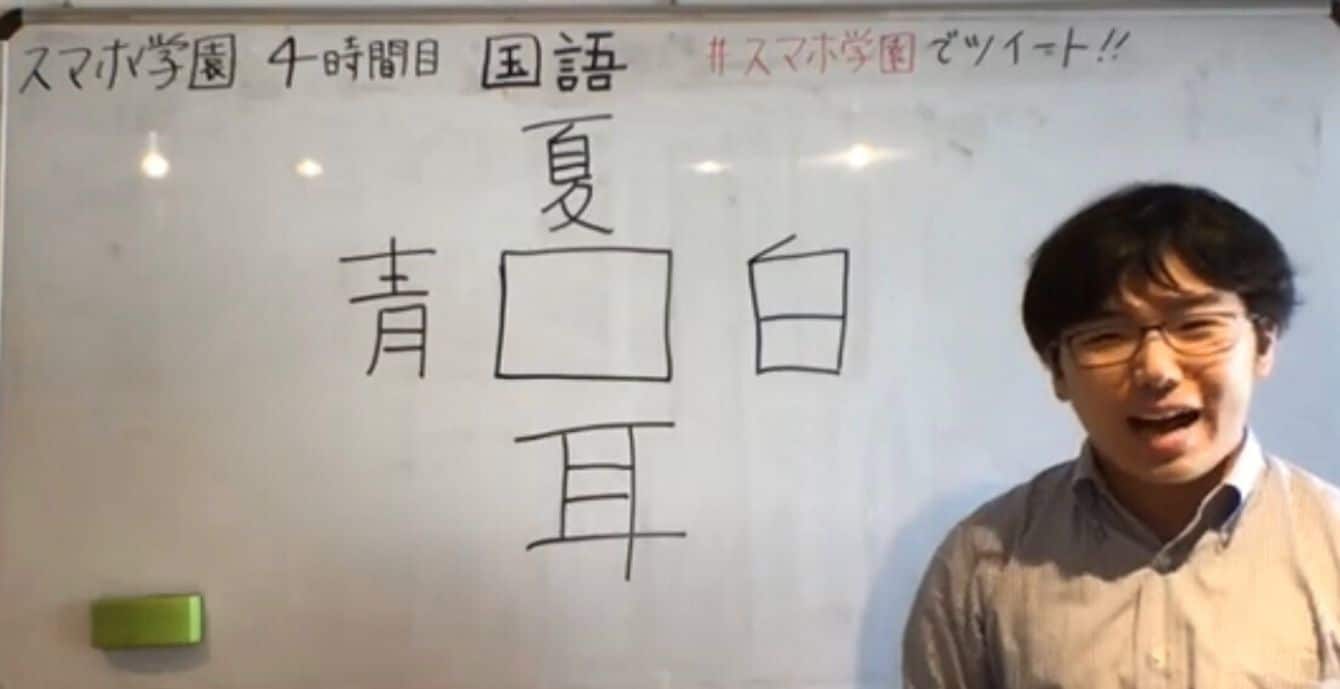 スマホ学園 4時間目 国語 #スマホ学園でツイート!!
夏
青 白
耳